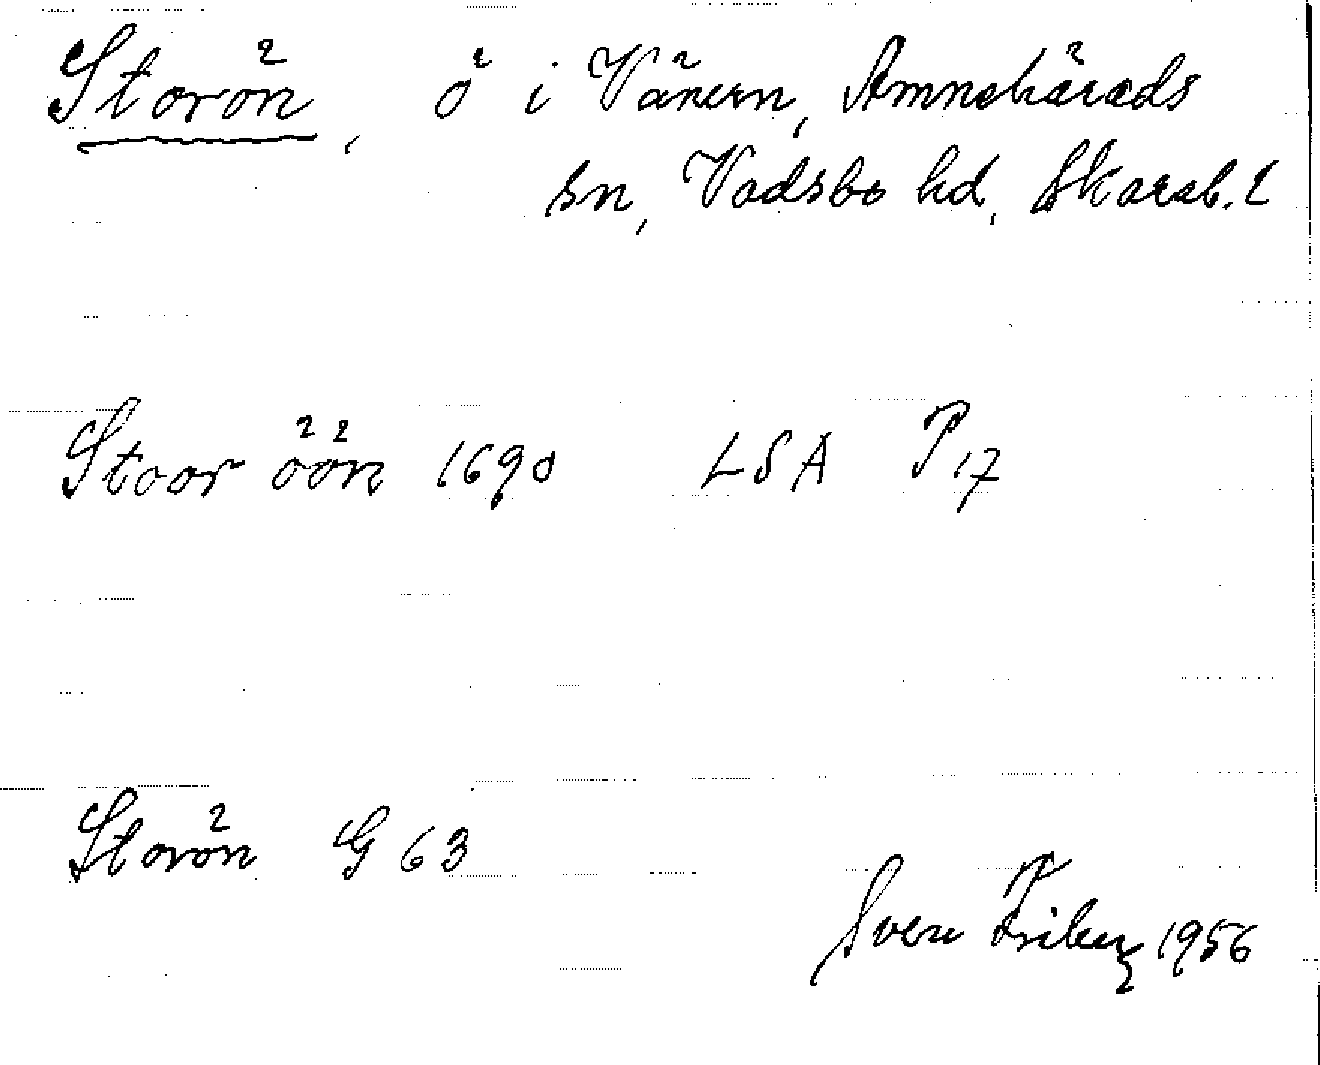 Storön, ö i Vänern, Amnehärads
sn, Vadsbo hd, Skarab. l
Stoor öön 1690 LSA P17
Storön G 63
Sven 1956